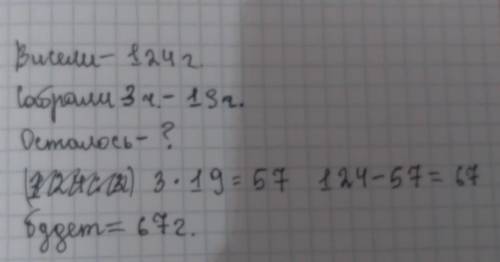 Висели - 124 г.
Собрали 3 ч. - 19 г.
Осталось - ?
3 · 19 = 57 124 - 57 = 67
будет = 67 г.